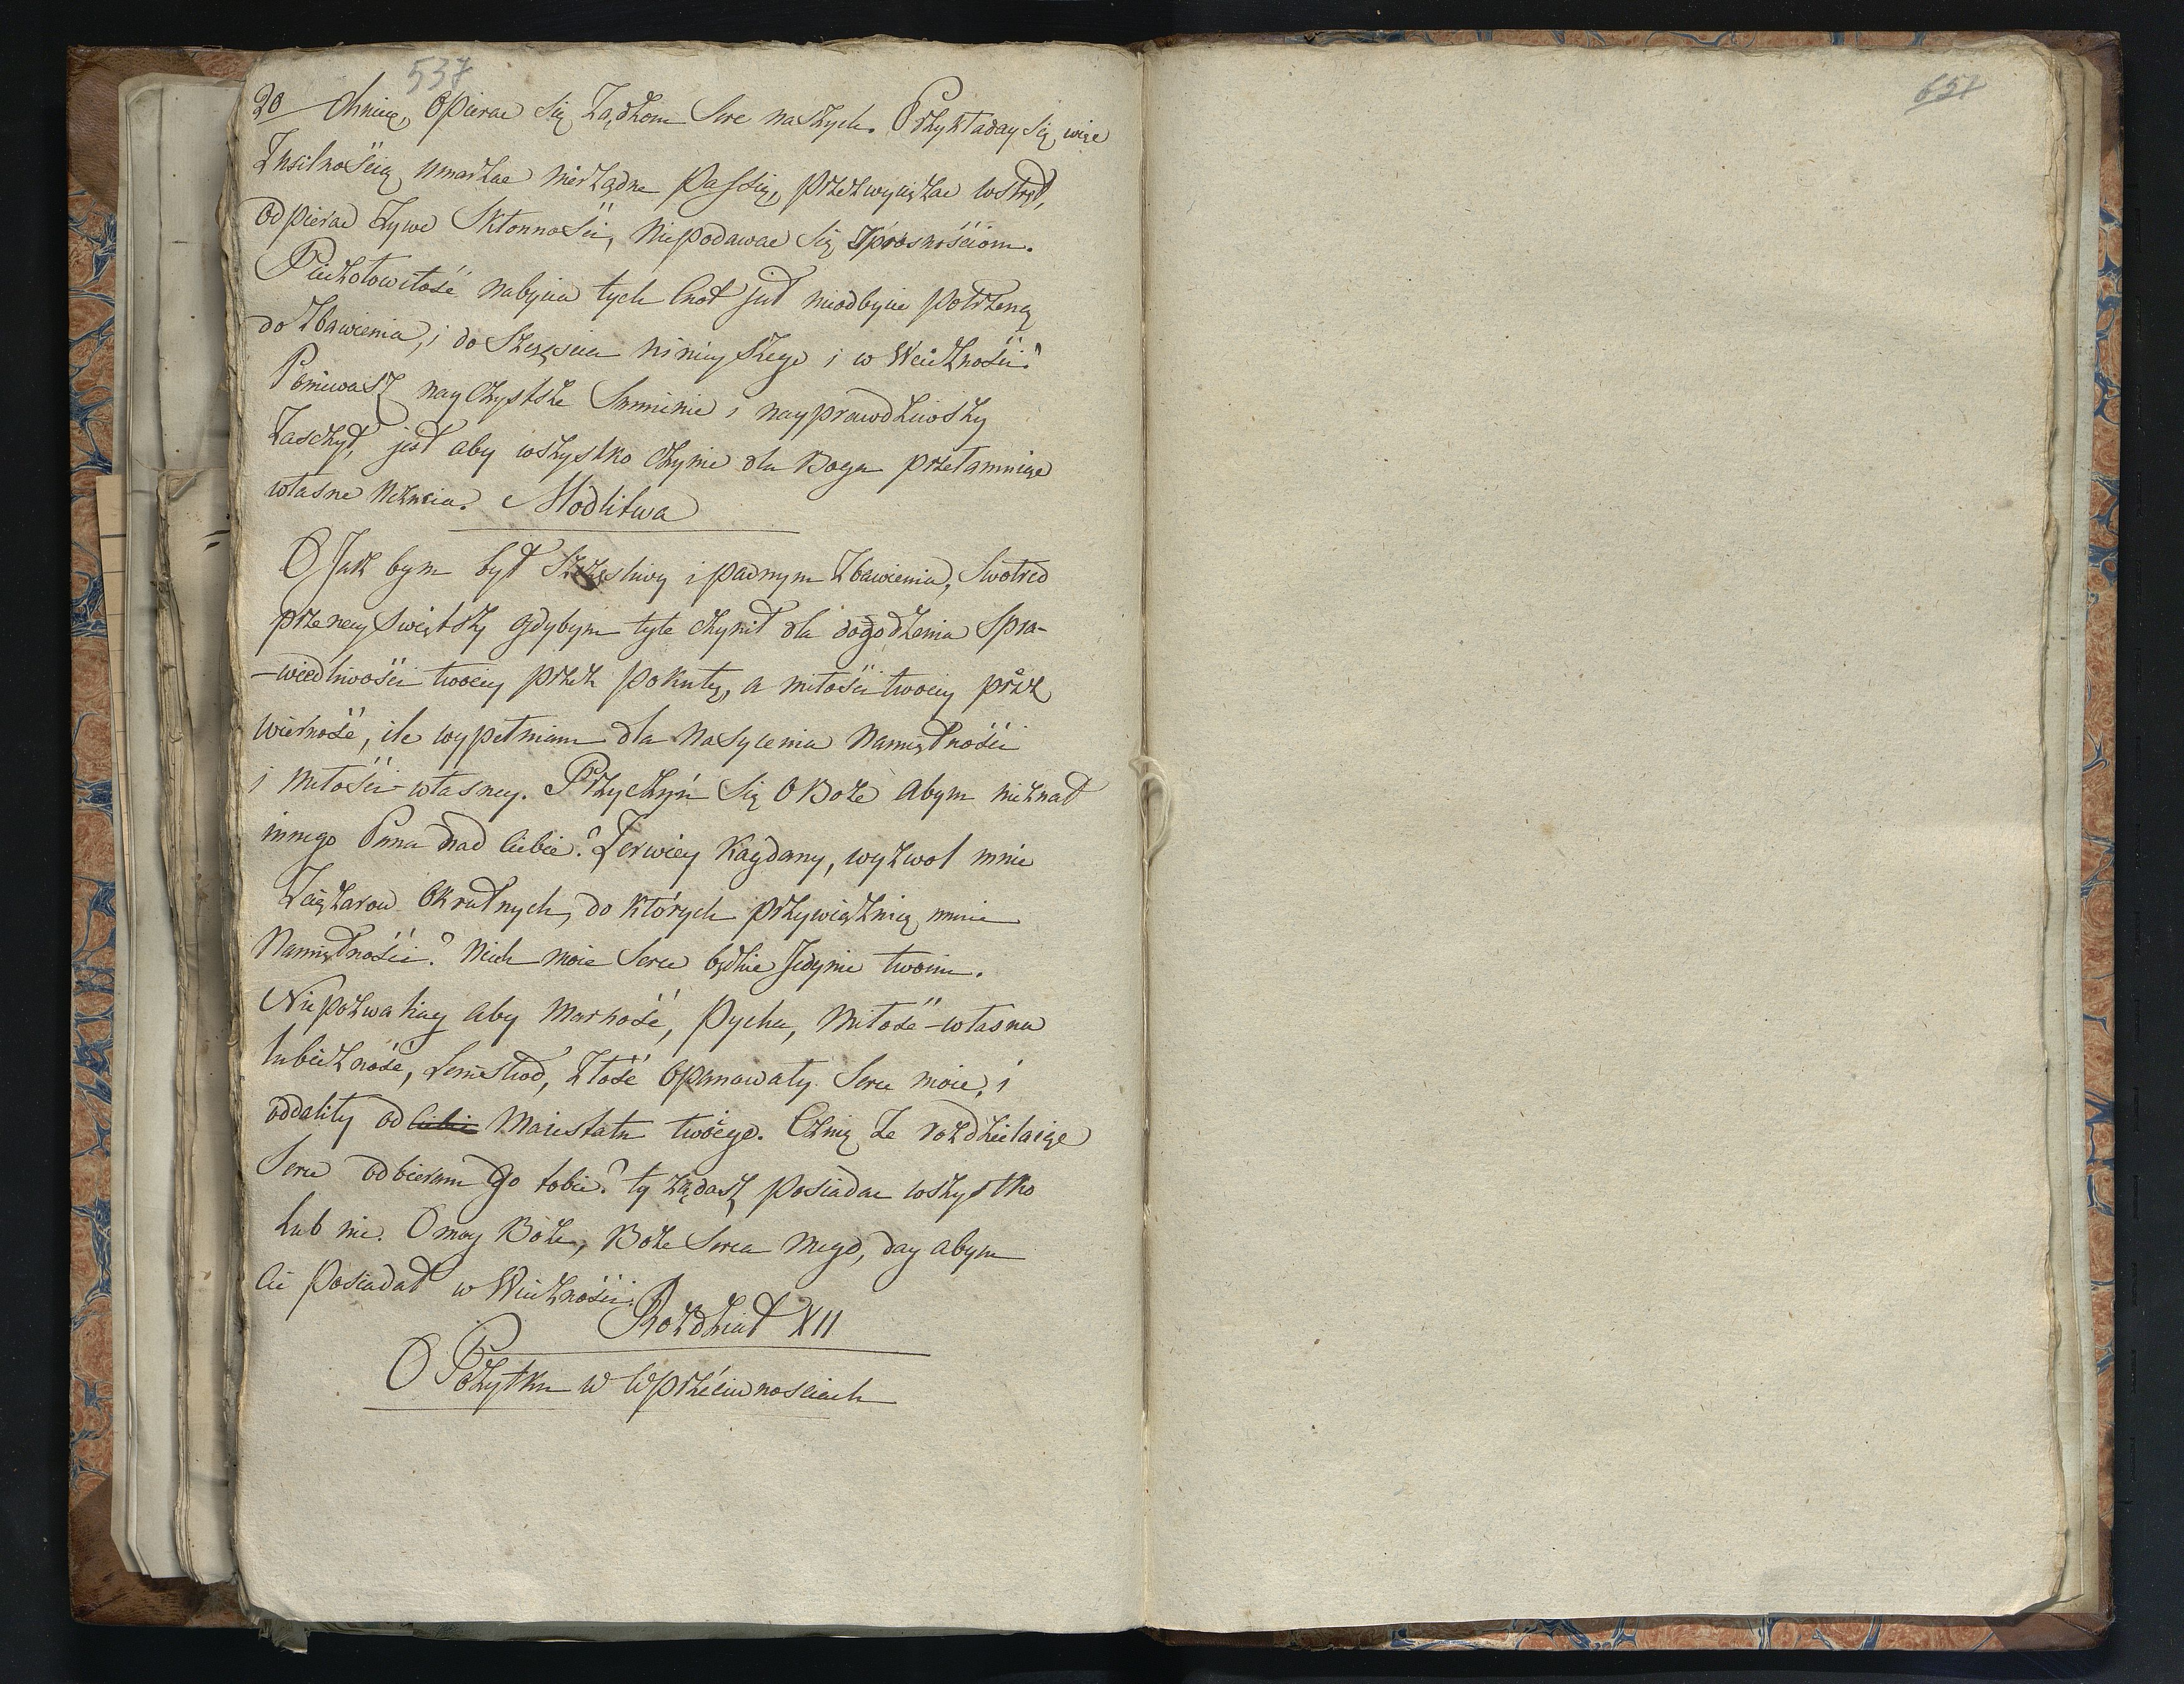 537
20 chnieę, Opierac się Żądzom Serc naszych. Przykładay się więc
Zusilnością umarzac nierządne Passię, przezwyciężac wstręt,
odpierac żywe Skłonności, Niepodawac się sprosnościom.
Pieczołowitość nabycia tych Cnot jest nieodbycie potrzeną
do Zbawienia, i do Szczęscia ninieyszego i w Wieczności?
Poniewasz nayczystsze Sumienie i nayprawdziwszy
Zaszczyt, jest aby wszystko czynic dla Boga przełamuiąc
własne uczucia. Modlitwa
O Jak bym był Szczęsliwy i pewnym Zbawienia, Swotrco
przenayswiętszy gdybym tyle czynił dla dogodzenia Spra-
-wiedliwości twoiey przez pokutę, a miłości twoiey przez
wierność, ile wypełniam dla nasycenia Namiętności
i Miłości-własney. Przyczyń się O Boże abym nieznał
innego Pana nad Ciebie? Zerwiey Kaydany, wyzwol mnie
Zciężarow Okrutnych, do których przywięznią mnie
Namiętności? Niech moie Serce będzie Jedynie twoim.
Niepozwalaiy aby Marność, Pycha, Miłość-własna
lubieżność, Lenistwo, Złość Opanowały Serce moie, i
oddaliły od Ciebie Maiestatu twoiego. Czuię że rozdzielaiąc
Serce odbieram go tobie? ty żądasz posiadac wszystko
lub nic. O moy Boże, Boże Serca mego, day abym
Cię posiadał w Wieczności.
Rozdział XII
O Pożytku w wprzeciwnosciach
657